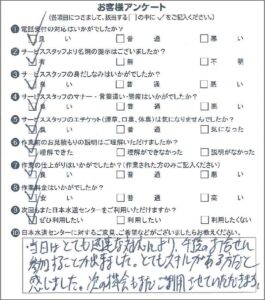 お客様アンケート
(各項目につきまして、該当する[ ]の中に✓をご記入ください。)
❶電話受付の対応はいかがでしたか?
良い 普通 悪い
❷サービススタッフより名刺の提示はございましたか?
有 無 不明
❸サービススタッフの身だしなみはいかがでしたか?
良い 普通 悪い
❹サービススタッフのマナー・言葉遣い・態度はいかがでしたか?
良い 普通 悪い
❺サービススタッフのエチケット(煙草、口臭、体臭)は気になりませんでしたか?
良い 普通 気になった
❻作業前のお見積もりの説明はご理解いただけましたか?
理解できた 理解ができなかった 説明がなかった
❼作業の仕上がりはいかがでしたか?(作業された方のみご記入ください)
良い 普通 悪い
❽作業料金はいかがでしたか?
安い 普通 高い
❾次回もまた日本水道センターをご利用いただけますか?
ぜひ利用したい 利用したい 利用したくない
❿日本水道センターに対するご意見、ご希望などがございましたらお教えください。
当日はとても
参加することが出来ました。とてもスキルがある方だと
感じました。次の機会もまたご利用させていただきます。